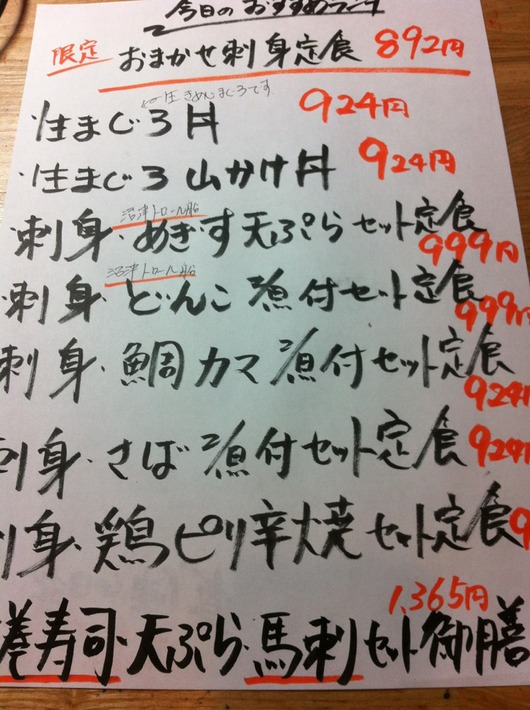 今日のおすすめランチ
限定 おまかせ刺身定食 892円
生きめじまぐろです
生まぐろ丼 924円
生まぐろ山かけ丼 924円
沼津トロール船
刺身・めぎす天ぷらセット定食 999円
沼津トロール船
刺身・どんこ煮付セット定食 999円
刺身・鯛カマ煮付セット定食 924
刺身・さば煮付セット定食 924
身・鶏ピリ辛焼セット定食 9
1,365円
巻寿司・天ぷら・馬刺セット御膳